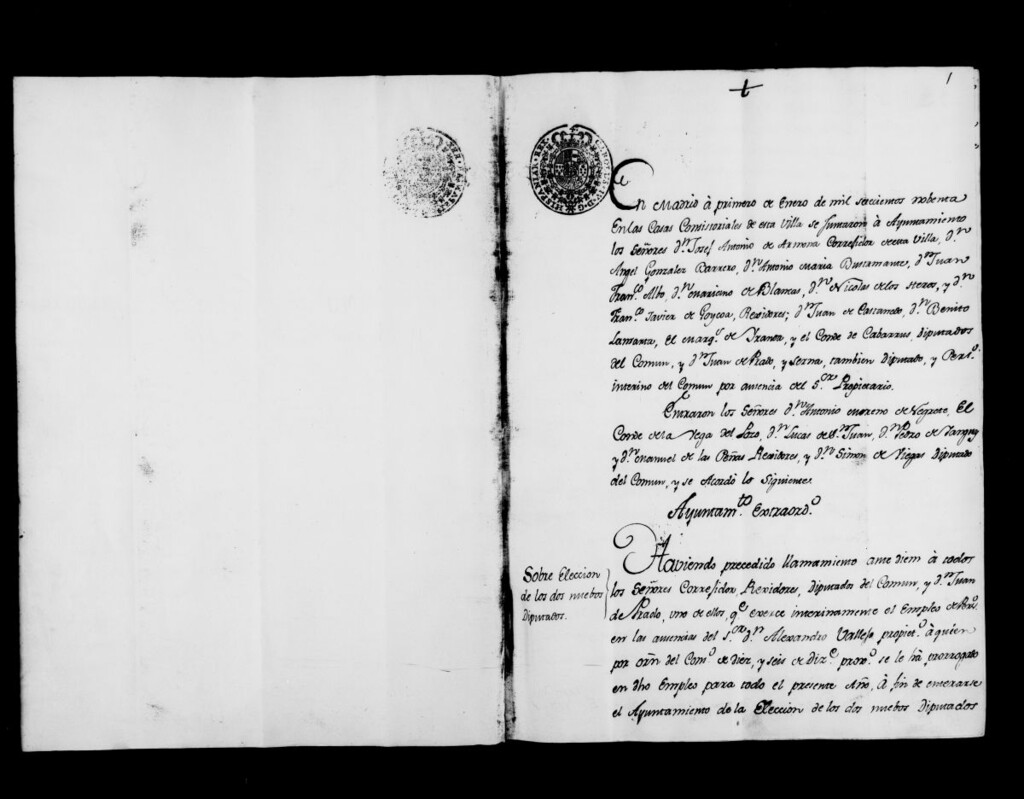 1
En Madrid à primero de Enero de mil setecientos nobenta
En las Casas Consistoriales de esta Villa se Juntaron à Ayuntamiento
los Señores dⁿ Josef Antonio de Armona Corregidor de esta Villa, dⁿ
Angel Gonzalez Barrero, dⁿ Antonio Maria Bustamante, dⁿ Juan
Franᶜᵒ Albo, dⁿ Mariano de Blancas, dⁿ Nicolas de los Heros, y dⁿ
Franᶜᵒ Javier de Goycoa, Rexidores; dⁿ Juan de Castanedo, dⁿ Benito
el Marqˢ de Iranda, y el Conde de Cabarrus, diputados
del Comun, y dⁿ Juan de Prado, y Serna, tambien Diputado, y Persᵒ
interino del Comun por ausencia del Sᵒʳ Propietario.
Entraron los Señores dⁿ Antonio Moreno de Negrete, El
Conde de la Vega del Pozo, dⁿ Lucas de Sⁿ Juan, dⁿ Pedro de
y dⁿ Manuel de las Peñas Rexidores, y dⁿ Simon de Viegas Diputado
del Comun, y se Acordó lo Siguiente
Ayuntamᵗᵒ Extraordᵒ
Sobre Eleccion
de los dos nuebos
Diputados.
Haviendo precedido llamamiento ante diem à todos
los Señores Corregidor, Rexidores, Diputados del Comun, y dⁿ Juan
de Prado, uno de ellos, qᵉ exerce interinamente el Empleo de
en las ausencias del Sᵒʳ dⁿ Alexandro Vallejo propietᵒ à quien
por orñ del Comᵒ de diez, y seis de Dizᵉ proxᵒ se le hà prorrogado
en dho Empleo para todo el presente Año, à fin de enterarse
el Ayuntamiento de la Eleccion de los dos nuebos Diputados